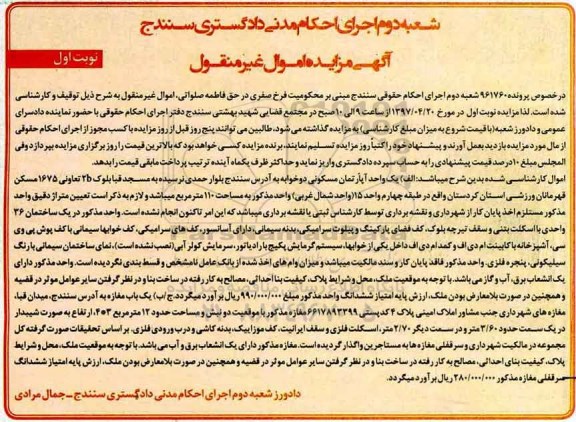 شعبه دوم اجرای احکام مدنی دادگستری سنندج
آگهی مزایده اموال غیر منقول
نوبت اول
درخصوص پرونده ۹۶۱۷۶۰ شعبه دوم اجرای احکام حقوقی سنندج مبنی بر محکومیت فرخ صفری در حق فاطمه صلواتی، اموال غیرمنقول به شرح ذیل توقیف و کارشناسی
شده است. لذا مزایده نوبت اول در مورخ ۱۳۹۷/۰۴/۲۰ از ساعت ۹ الی ۱۰ صبح در مجتمع قضایی شهید بهشتی سنندج دفتر اجرای احکام حقوقی با حضور نماینده دادسرای
عمومی و دادورز شعبه (با قیمت شروع به میزان مبلغ کارشناسی) به مزایده گذاشته می شود، طالبین می توانند پنج روز قبل از روز مزایده با کسب مجوز از اجرای احکام حقوقی
از مال مورد مزایده بازدید بعمل آورند و پیشنهاد خود را کتباً روز مزایده تسلیم نمایند، برنده مزایده کسی خواهد بود که بالاترین قیمت را روز برگزاری مزایده بپردازد و فی
المجلس مبلغ ۱۰ درصد قیمت پیشنهادی را به حساب سپرده دادگستری واریز نماید و حداکثر ظرف یکماه آینده ترتیب پرداخت مابقی قیمت را بدهد.
اموال کارشناسی شده بدین شرح میباشد: الف) یک واحد آپارتمان مسکونی دوخوابه به آدرس سنندج بلوار حمدی نرسیده به مسجد قبا بلوک ۲b تعاونی ۱۶۷۵ مسکن
قهرمانان ورزشی استان کردستان واقع در طبقه چهارم واحد ۱۵ (واحد شمال غربی) واحد مذکور به مساحت ۱۱۰ مترمربع میباشد و لازم به ذکر است تعیین متراژ دقیق واحد
مذکور مستلزم اخذ پایان کار از شهرداری و نقشه برداری توسط کارشناس ثبتی یا نقشه برداری میباشد که این امر تاکنون انجام نشده است. واحد مذکور در یک ساختمان ۳۶
واحدی با اسکلت بتنی و سقف تیرچه بلوک، کف فضای پارکینگ و پیلوت سرامیکی، بدنه سیمانی، دارای آسانسور، کف های سرامیکی، کف خوابها سیمانی با کف پوش پی وی
سی، آشپزخانه با کابینت ام دی اف و کمد ام دی اف داخل یکی از خوابها، سیستم گرمایش پکیج با رادیاتور، سرمایش کولر آبی (نصب نشده است)، نمای ساختمان سیمانی با رنگ
سیلیکونی، پنجره فلزی. واحد مذکور فاقد پایان کار و سند مالکیت میباشد و میزان وام های اخذ شده از بانک عامل نامشخص و قسط بندی نگردیده است. واحد مذکور دارای
یک انشعاب برق، آب و گاز می باشد. با توجه به موقعیت ملک، محل و شرایط پلاک، کیفیت بنا احداثی، مصالح به کار رفته در ساخت بنا و در نظر گرفتن سایر عوامل موثر در قضیه
و همچنین در صورت بلامعارض بودن ملک، ارزش پایه امتیاز ششدانگ واحد مذکور مبلغ ۹۹۰/۰۰۰/۰۰۰ ریال برآورد میگردد. ج/ب) یک باب مغازه به آدرس سنندج، میدان قبا،
مغازه های شهرداری جنب مشاور املاک امینی پلاک ۴ کدپستی ۶۶۱۷۸۹۳۳۹۹ مغازه مذکور با موقعیت دو نبش و مساحت حدود ۱۲ مترمربع ۳*۴، ارتفاع به صورت شیبدار
در یک سمت حدود ۳/۶۰ متر و در سمت دیگر ۲/۷۰ متر، اسکلت فلزی و سقف ایرانیت، کف موزاییک، بدنه کاشی و درب ورودی فلزی. بر اساس تحقیقات صورت گرفته کل
مجموعه در مالکیت شهرداری و سرقفلی مغازه ها به مستاجرین واگذار گردیده است. مغازه مذکور دارای یک انشعاب برق و آب می باشد. با توجه به موقعیت ملک، محل و شرایط
پلاک، کیفیت بنای احداثی، مصالح به کار رفته در ساخت بنا و در نظر گرفتن سایر عوامل موثر در قضیه و همچنین در صورت بلامعارض بودن ملک، ارزش پایه امتیاز ششدانگ
سرقفلی مغازه مذکور ۲۸۰/۰۰۰/۰۰۰ ریال برآورد میگردد.
دادورز شعبه دوم اجرای احکام مدنی دادگستری سنندج ـ جمال مرادی